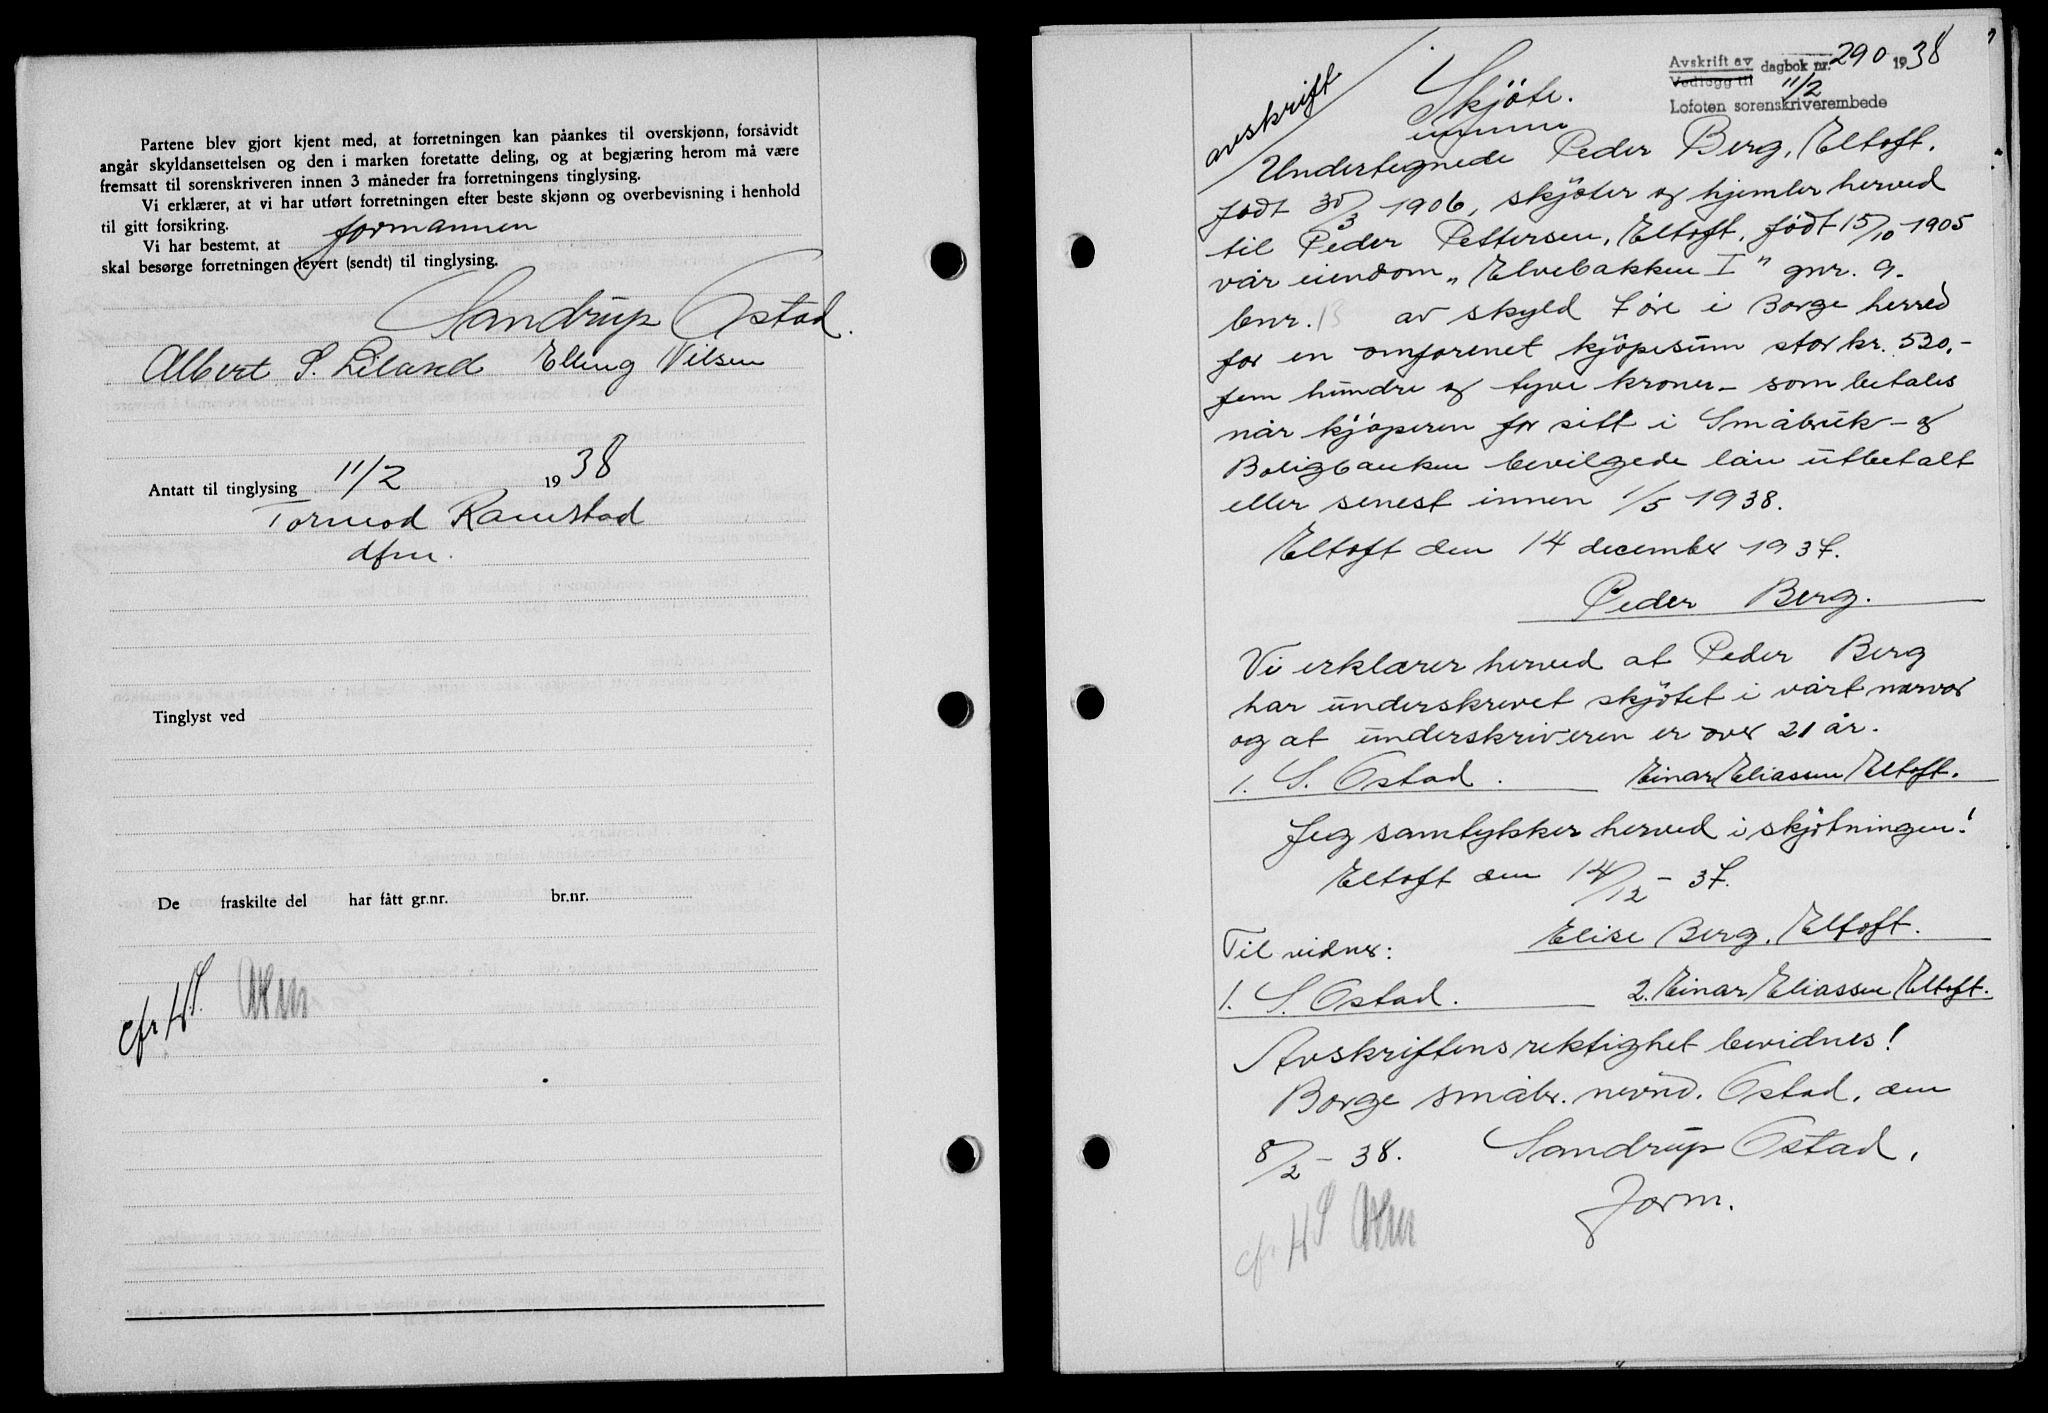 Partene blev gjort kjent med, at forretningen kan påankes til overskjønn, forsåvidt
angår skyldansettelsen og den i marken foretatte deling, og at begjæring herom må være
fremsatt til sorenskriveren innen 3 måneder fra forretningens tinglysing.
Vi erklærer, at vi har utført forretningen efter beste skjønn og overbevisning i henhold
til gitt forsikring.
Vi har bestemt, at formannen
skal besørge forretningen levert (sendt) til tinglysing.
Sandrup Ostad.
Albert S. Liland Elling Nilsen
Antatt til tinglysing 11/2 1938
Tormod Ramstad
dfm.
Tinglyst ved
De fraskilte del har fått gr.nr. br.nr.
cfr. HS.
avskrift
Skjöte.
Avskrift av dagbok nr. 290 1938
Vedlegg til 11/2
Lofoten sorenskriverembede
Undertegnede Peder Berg, Eltoft.
født 30/3 1906, skjøter og hjemler herved
til Peder Pettersen, Eltoft, født 15/10-1905
vår eiendom „Elvebakken I" gnr. 9.
bnr. 13 av skyld 7 øre i Borge herred
for en omforenet kjöpesum stor kr. 520,-
fem hundre og tyve kroner - som betales
når kjöperen for sitt i Småbruk- og
Boligbanken bevilgede lån utbetalt
eller senest innen 1/5 1938.
Eltoft den 14 december 1937.
Peder Berg.
Vi erklærer herved at Peder Berg
har underskrevet skjötet i vårt nærvær
og at underskriveren er over 21 år.
1. S. Ostad. Einar Eliassen Eltoft.
Jeg samtykker herved i skjötningen!
Eltoft den 14/12 - 37.
Elise Berg, Eltoft.
Til vidner:
1. S. Ostad. 2. Einar Eliassen Eltoft.
Avskriftens riktighet bevidnes!
Borge småbr. nevnd. Ostad, den
8/2 - 38. Sandrup Ostad,
form.
cfr. HS